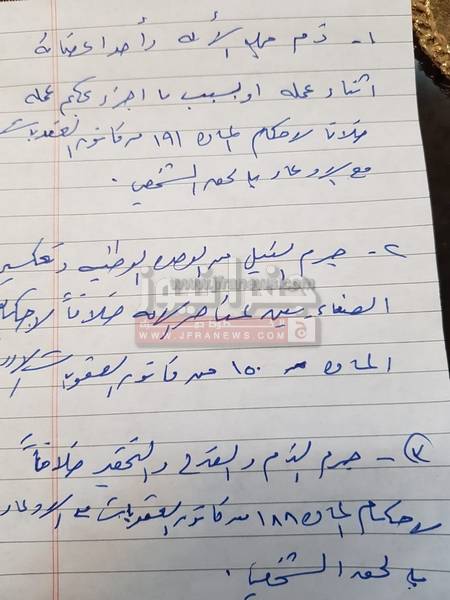 ١- ذم مجلس الأمة وأحد اعضائه
اثناء عمله او بسبب ما اجراه بحكم عمله
خلافاً لاحكام المادة ١٩١ من قانون العقوبات
مع الادعاء بالحق الشخصي .
٢- جرم النيل من الوحدة الوطنية وتعكير
الصفاء بين عناصر الامة خلافاً لاحكام
المادة ١٥٠ من قانون العقوبات
٣- جرم الذم والقدح والتحقير خلافاً
لاحكام المادة ١٨٨ من قانون العقوبات مع الادعاء
بالحق الشخصي .
www.jfranews.com
جفرا نيوز
WWW.JFRANEWS.COM